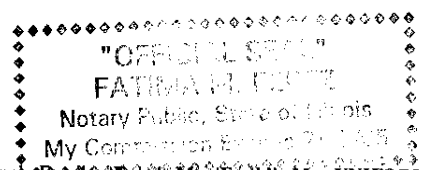 "OFFICIAL SEAL"
FATIMA M.
Notary Public, State of Illinois
My Commission Expires